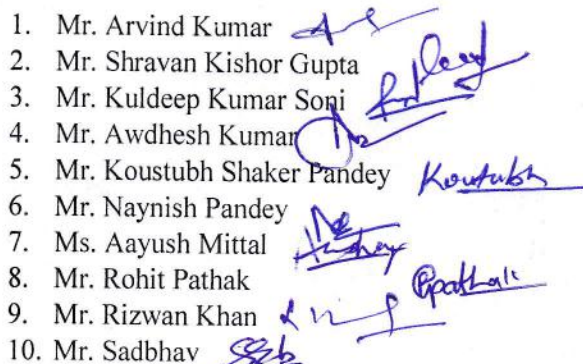 1. Mr. Arvind Kumar
2. Mr. Shravan Kishor Gupta
3. Mr. Kuldeep Kumar Soni
4. Mr. Awdhesh Kumar
5. Mr. Koustubh Shaker Pandey Koustubh
6. Mr. Naynish Pandey
7. Ms. Aayush Mittal
8. Mr. Rohit Pathak
9. Mr. Rizwan Khan
10. Mr. Sadbhav